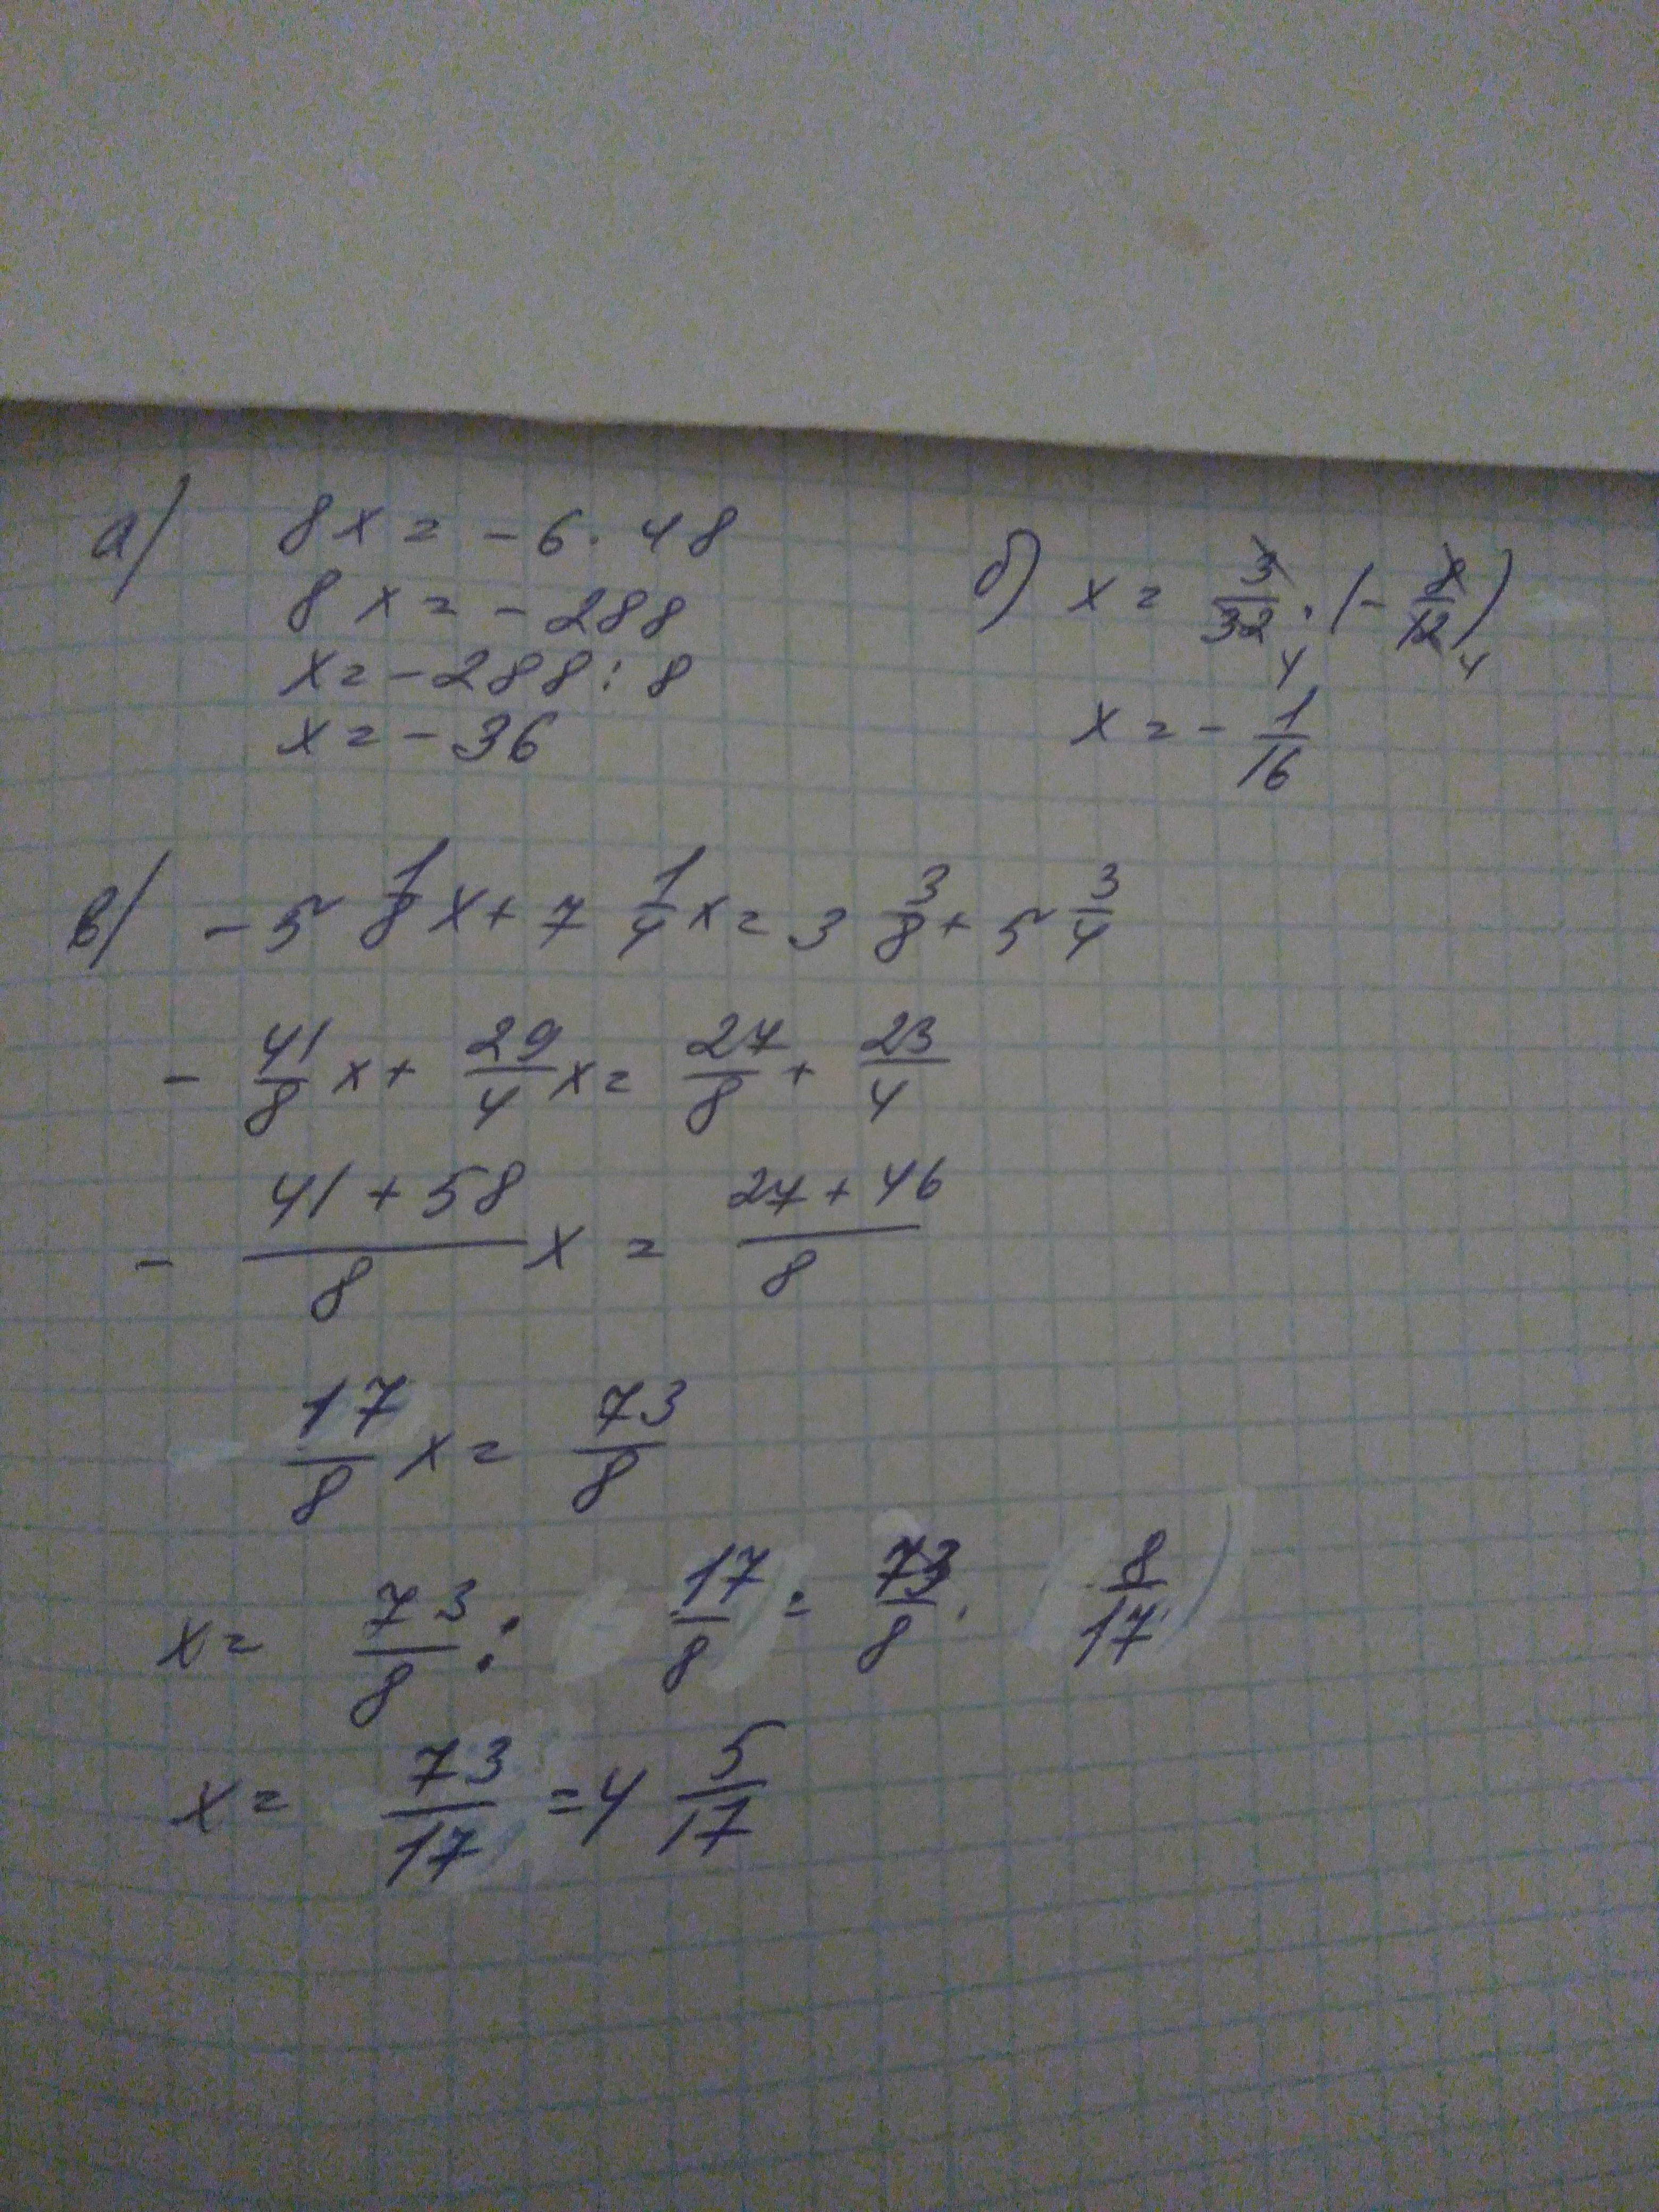 а) 8x = - 6 · 48
8x = - 288
x = - 288 : 8
x = - 36
б) x = 3/32 4 · (- 8/12 4)
x = - 1/16
в) - 5 1/8 x + 7 1/4 x = 3 3/8 + 5 3/4
- 41/8 x + 29/4 x = 27/8 + 23/4
- (41 + 58)/8 x = (27 + 46)/8
17/8 x = 73/8
x = 73/8 : 17/8 = 73/8 · 8/17
x = 73/17 = 4 5/17